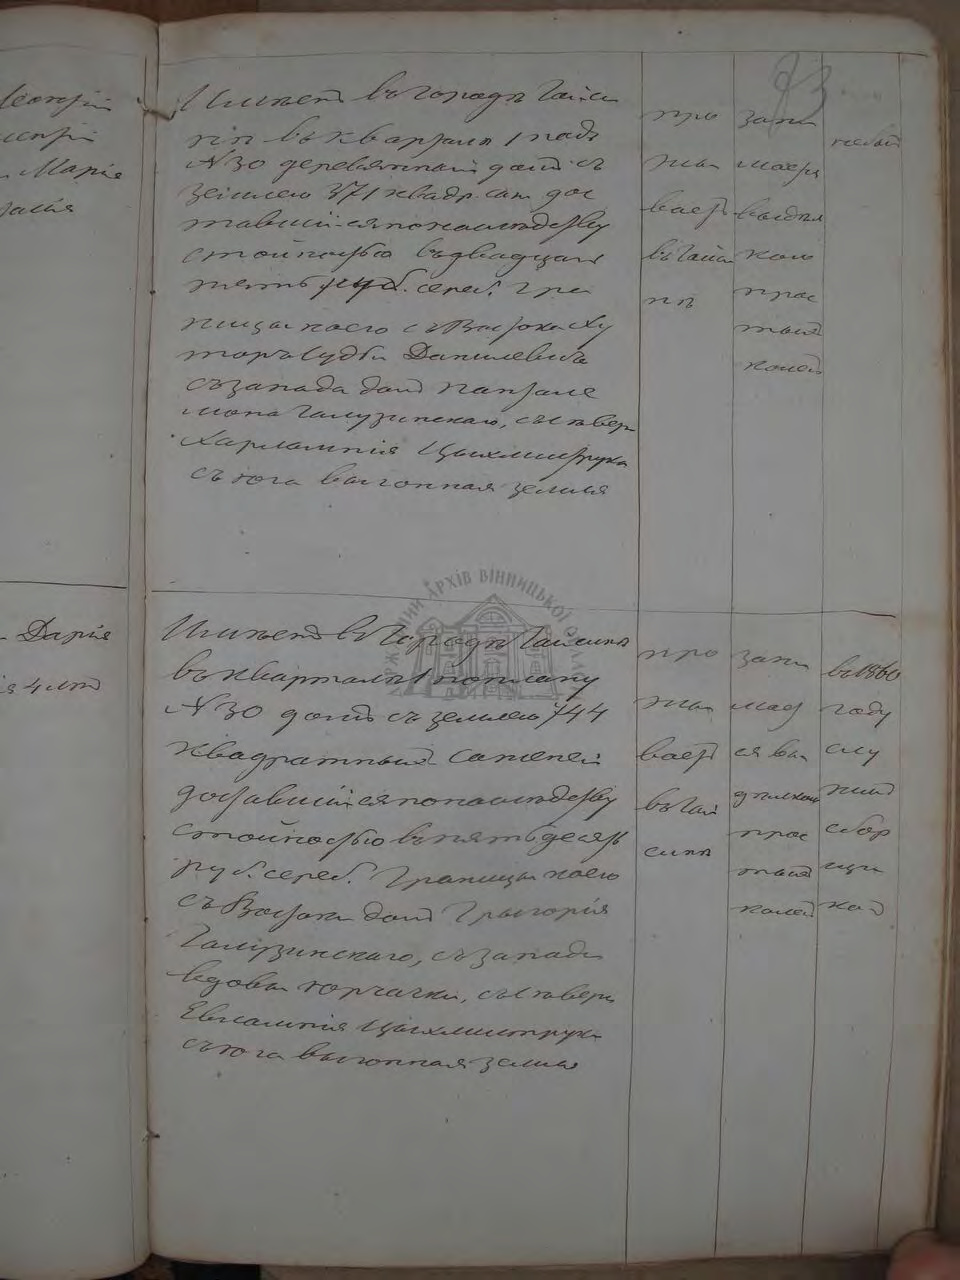 93
Марія
Имѣетъ въ городѣ Гайси
нѣ въ квартале 1 подъ
№ 30 деревянный домъ съ
землею 371 квадр. саж. дос
тавшійся по наслѣдству
стоимостью въ двадцать
пять руб. сереб. Гра
ницы коего съ Востока Ху
торъ Данилевича
съ запада домъ Пантеле
мона Галузинскаго, съ севера
Харлампія Цыхмиструка
съ юга выгонная земля
про
жи
ваетъ
въ Гайси
нѣ
зани
мается
выдѣл
кою
прос
тыхъ
кожей
Дарія
4 лѣтъ
Имѣетъ въ Городѣ Гайсинѣ
въ Квартале 1 по плану
№ 30 домъ съ землею 744
квадратныхъ саженей
доставшійся по наслѣдству
стоимостью въ пятьдесятъ
руб. сереб. Границы коего
съ Востока домъ Григорія
Галузинскаго, съ запада
вдовы, съ севера
Евлампія Цыхмиструка
съ юга выгонная земля
про
жи
ваетъ
въ Гай
синѣ
зани
мает
ся вы
дѣлкою
прос
тыхъ
кожей
въ 1860
году
слу
жилъ
сбор
щи
комъ
ДЕРЖАВНИЙ АРХІВ ВІННИЦЬКОЇ ОБЛАСТІ